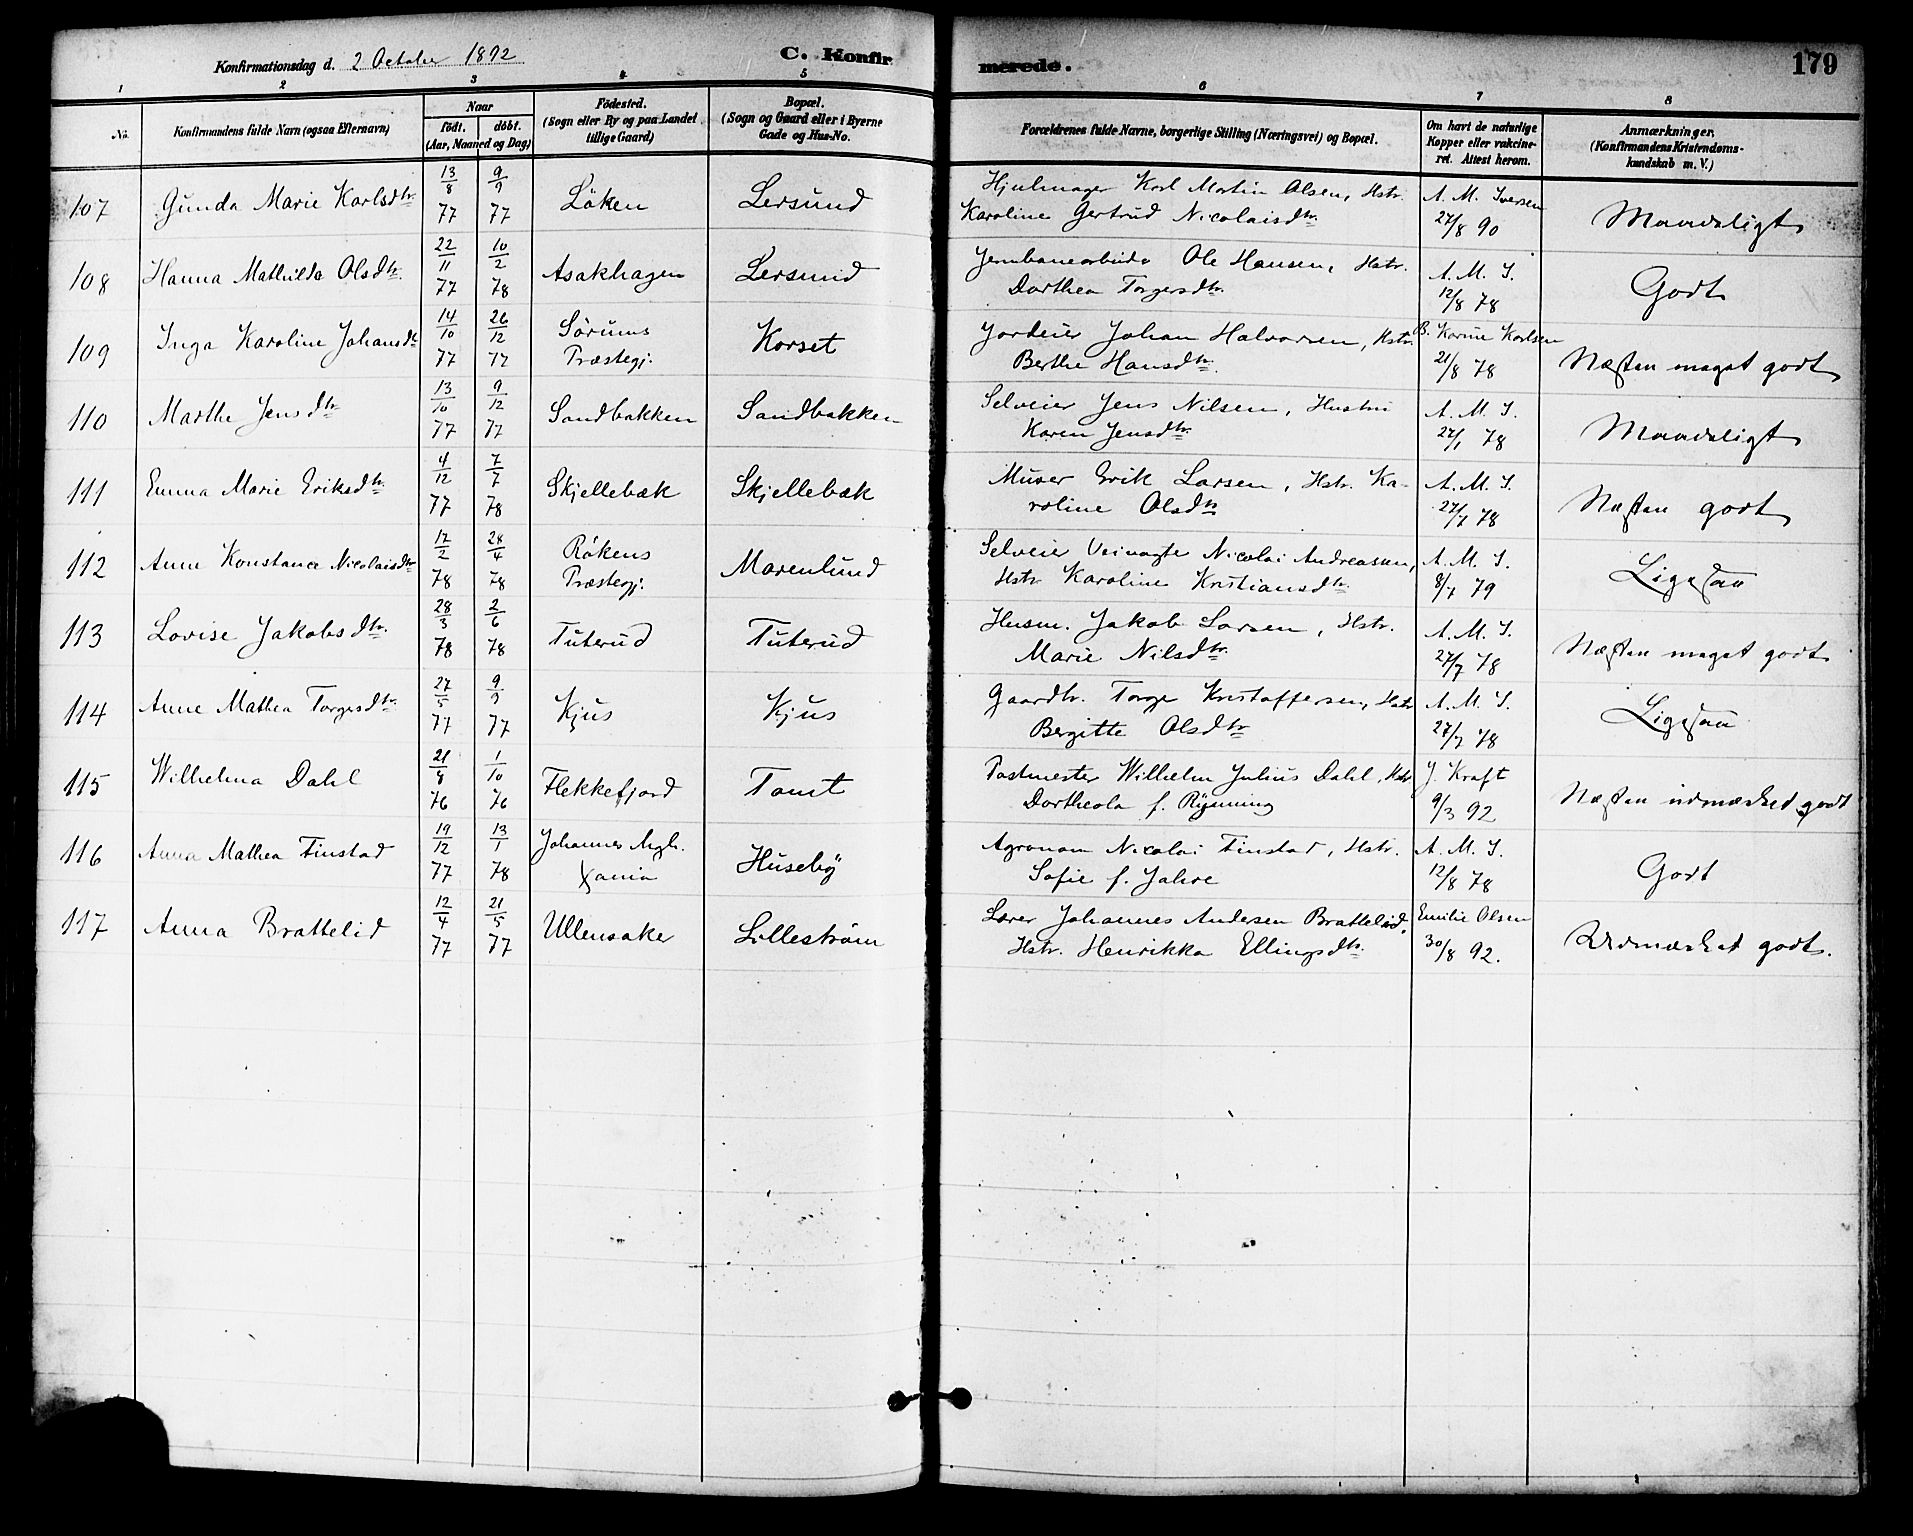 Konfirmationsdag d. 2 October 1892
C. Konfirmerede.
179
1 2 3 4 5 6 7 8
No. Konfirmandens fulde Navn (ogsaa Efternavn) Naar födt. döbt. (Aar, Maaned og Dag) Födested. (Sogn eller By og paa Landet tillige Gaard) Bopæl. (Sogn og Gaard eller i Byerne Gade og Hus-No. Forældrenes fulde Navne, borgerlige Stilling (Næringsvei) og Bopæl. Om havt de naturlige Kopper eller vakcineret. Attest herom. Anmærkninger. (Konfirmandens Kristendomskundskab m. V.)
107 Gunda Marie Karlsdtr 13/8 77 9/9 77 Löken Lersund Hjulmager Karl Martin Olsen, Hstr. Karoline Gertrud Nicolaisdtr. A. M. Iversen 27/8 90 Maadeligt
108 Hanna Mathilda Olsdtr. 22/11 77 10/2 78 Asakhagen Lersund Jernbanearbeide Ole Hansen, Hstr. Dorthea Torgersdtr. A. M. I. 12/8 78 Godt
109 Inga Karoline Johansdtr 14/10 77 26/12 77 Sörums Præstegj. Korset Jordeier Johan Halvorsen, Hstr. Berthe Hansdtr. B. Karine Karlsen 21/8 78 Næsten meget godt
110 Marthe Jensdtr 13/10 77 9/12 77 Sandbakken Sandbakken Selveier Jens Nilsen, Hustru Karen Jensdtr. A. M. I. 27/1 78 Maadeligt
111 Emma Marie Eriksdtr. 4/12 77 7/7 78 Skjellebæk Skjellebæk Murer Erik Larsen, Hstr. Karoline Olsdtr A. M. I. 27/7 78 Næsten godt
112 Anne Konstance Nicolaisdtr 17/2 78 28/4 78 Rökens Præstegj. Marenlund Selveier Veivogte Nicolai Andreassen, Hstr Karoline Kristiansdtr. A. M. I. 8/7 79 Ligesaa
113 Lovise Jakobsdtr. 28/3 78 2/6 78 Tuterud Tuterud Husm. Jakob Larsen, Hstr. Marie Nilsdtr. A. M. I. 27/7 78 Næsten meget godt
114 Anne Mathea Torgersdtr. 27/5 77 9/9 77 Kjus Kjus Gaardbr. Torge Kristoffersen, Hstr Bergitte Olsdtr A. M. I. 27/7 78 Ligesaa
115 Wilhelma Dahl 21/8 76 1/10 76 Flekkefjord Tomt Postmester Wilhelm Julius Dahl, Hstr Dortheola f. Rynning J. Kraft 9/3 92 Næsten udmærket godt
116 Anna Mathea Finstad 19/12 77 13/1 78 Johannes Mgh. Xania Huseby Agronom Nicolai Finstad, Hstr. Sofie f. Jahre A. M. I. 12/8 78 Godt
117 Anna Brattelid 12/4 77 21/5 77 Ullensaker Lilleström Lærer Johannes Andersen Brattelid, Hstr. Henrikka Ellingsdtr. Emilie Olsen 30/8 92. Udmærket godt.